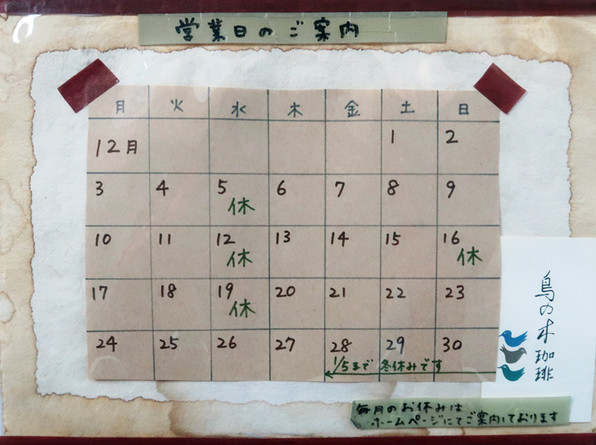 営業日のご案内
月 火 水 木 金 土 日
12月 1 2
3 4 5 6 7 8 9
休
10 11 12 13 14 15 16
休 休
17 18 19 20 21 22 23
休
24 25 26 27 28 29 30
1/5まで 冬休みです
鳥の木珈琲
毎月のお休みは
ホームページにてご案内しております